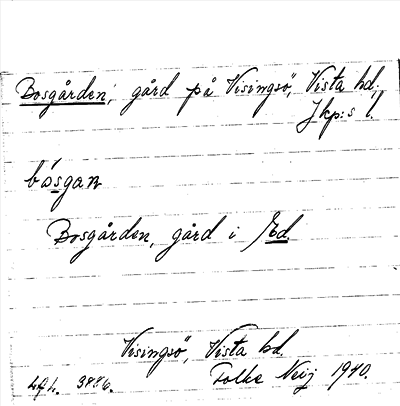 Bosgården, gård på Visingsö, Vista hd,
Jkp:s l.
bósgan
Bosgården, gård i Ed
Visingsö, Vista hd.
Folke Neij 1940.